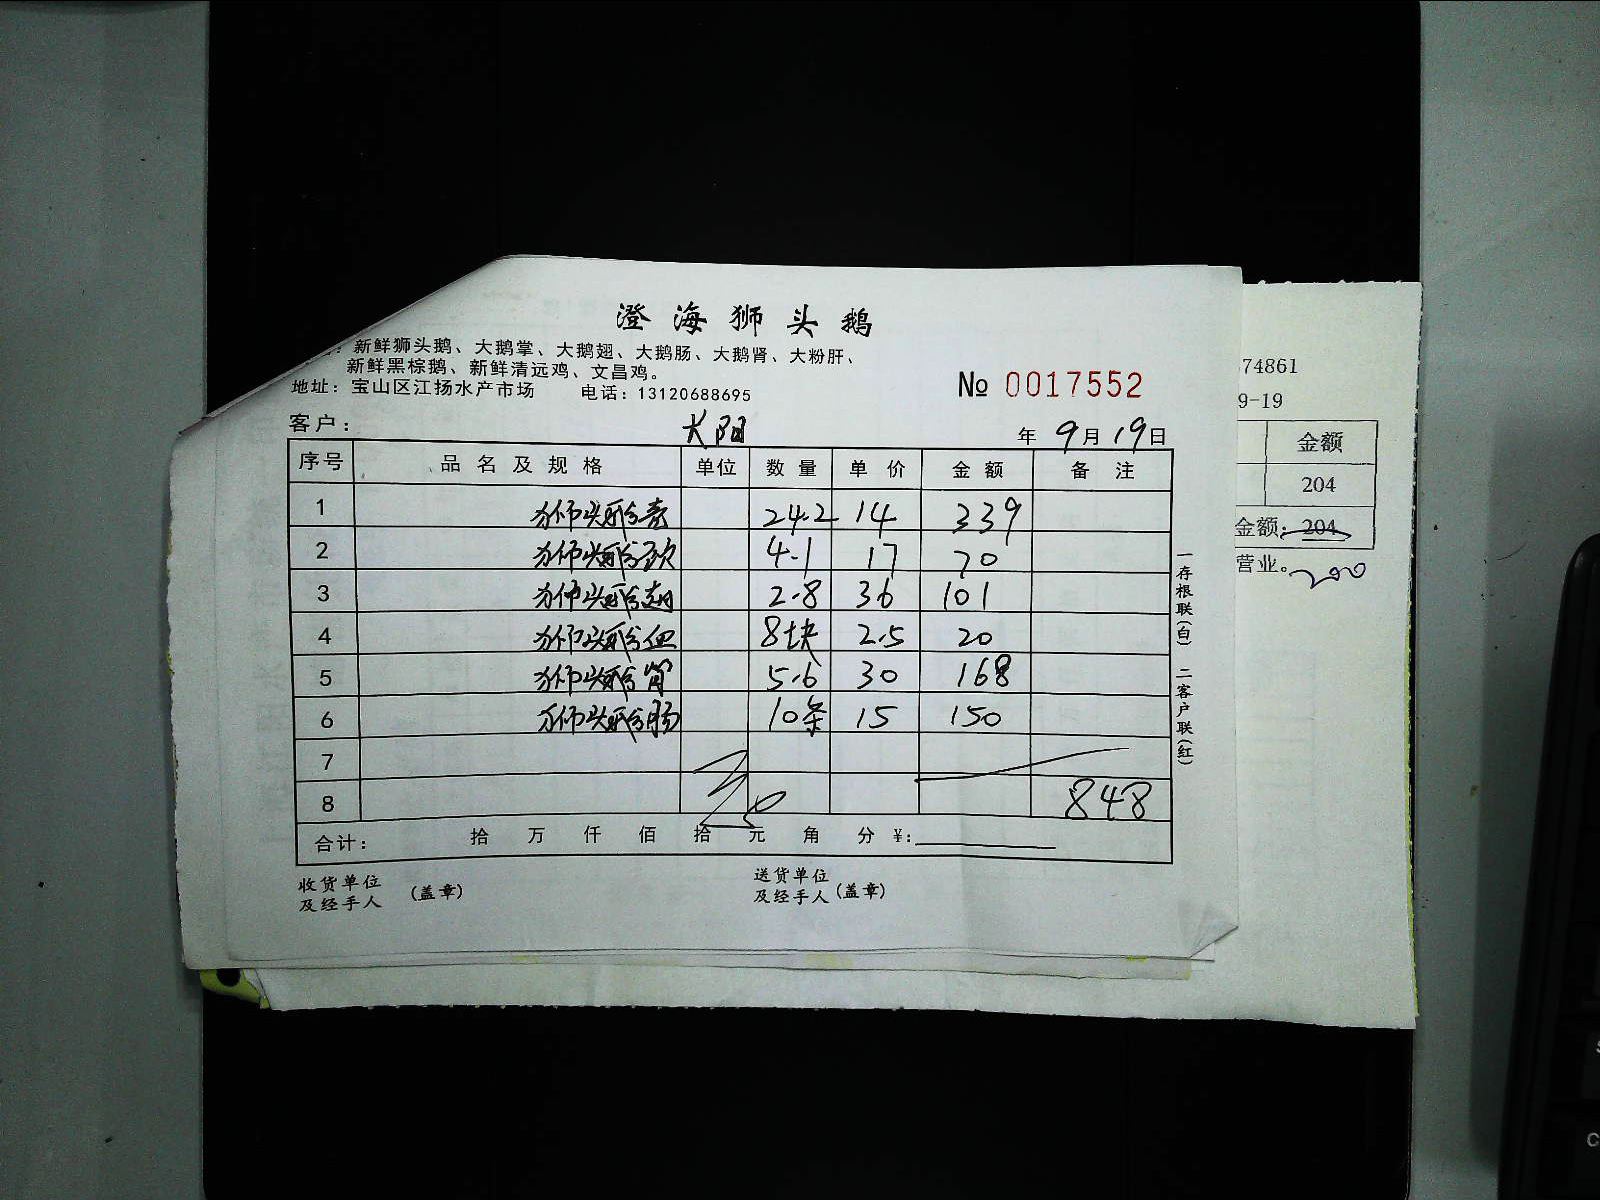 澄海狮头鹅
：新鲜狮头鹅、大鹅掌、大鹅翅、大鹅肠、大鹅肾、大粉肝、
新鲜黑棕鹅、新鲜清远鸡、文昌鸡。
地址：宝山区江扬水产市场 电话：13120688695
№ 0017552
客户： 大阳 年 9月19日
序号 品名及规格 单位 数量 单价 金额 备注
1 狮头鹅壳 24.2 14 339
2 狮头鹅 4.1 17 70
3 狮头鹅翅 2.8 36 101
4 狮头鹅血 8块 2.5 20
5 狮头鹅肾 5.6 30 168
6 狮头鹅肠 10条 15 150
7
8 848
合计： 拾 万 仟 佰 拾 元 角 分 ¥：
收货单位
及经手人 （盖章）
送货单位
及经手人（盖章）
一存根联（白） 二客户联（红）
74861
9-19
金额
204
金额：204
营业。200